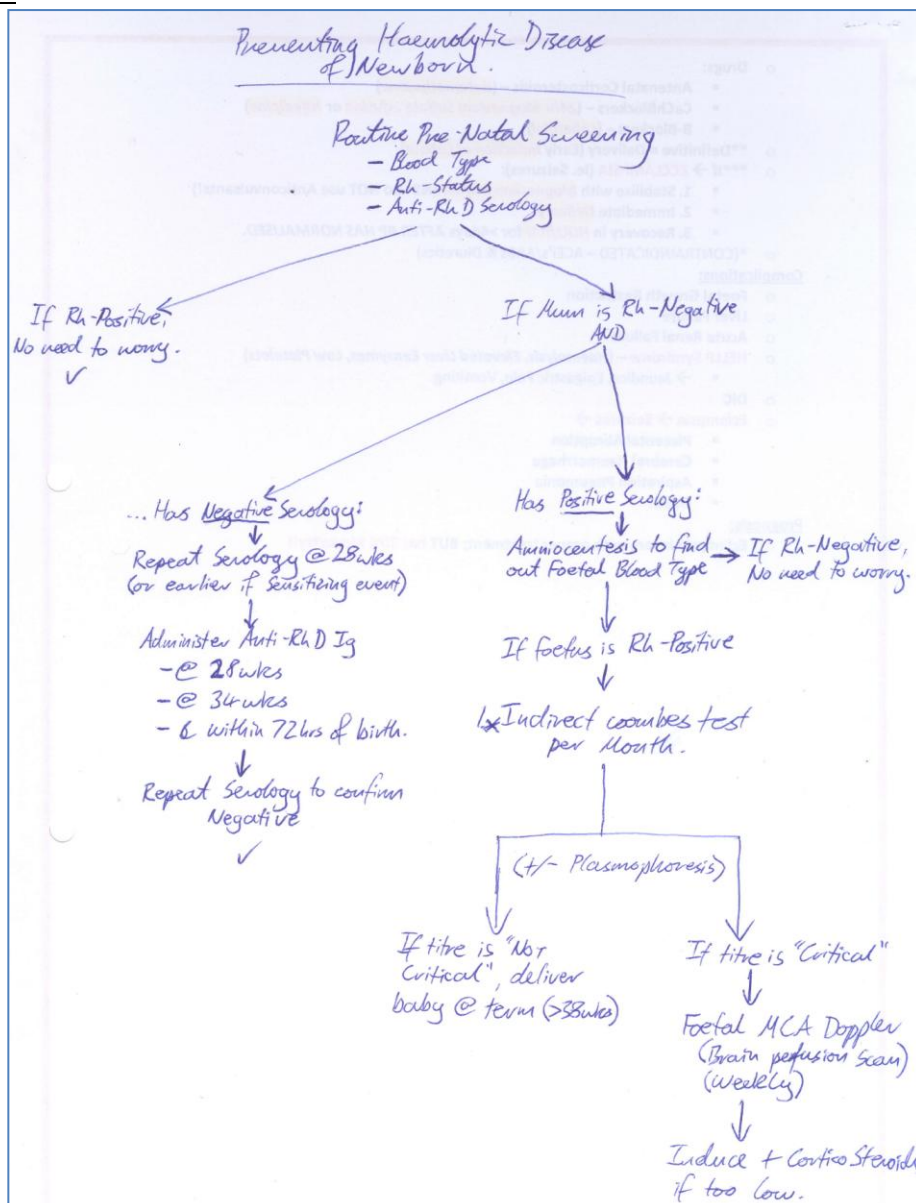 Preventing Haemolytic Disease
of Newborn.
Routine Pre-Natal Screening
- Blood Type
- Rh-Status
- Anti-RhD Serology
If Rh-Positive,
No need to worry.
✓
If Mum is Rh-Negative
AND
... Has Negative Serology:
Repeat Serology @ 28wks
(or earlier if Sensitizing event)
Administer Anti-RhD Ig
- @ 28wks
- @ 34wks
- & within 72hrs of birth.
Repeat Serology to confirm
Negative
✓
Has Positive Serology:
Amniocentesis to find
out Foetal Blood Type
If Rh-Negative,
No need to worry.
If foetus is Rh-Positive
1x Indirect coombes test
per Month.
(+/- Plasmophoresis)
If titre is "Not
Critical", deliver
baby @ term (>38wks)
If titre is "Critical"
Foetal MCA Doppler
(Brain perfusion scan)
(Weekly)
Induce + Cortico Steroids
if too low.